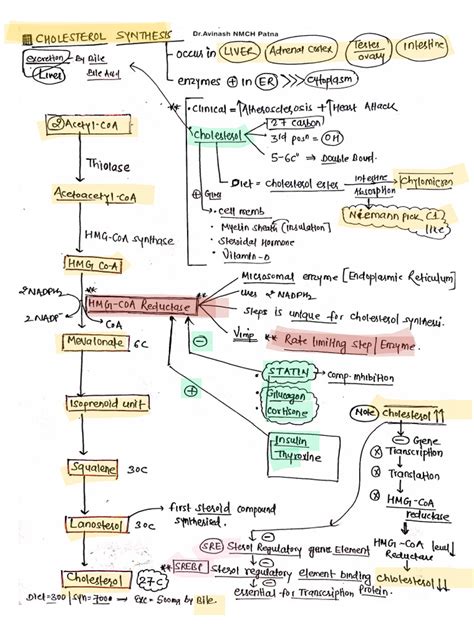 CHOLESTEROL SYNTHESIS
Dr.Avinash NMCH Patna
excretion → By Bile
Liver
Bile Acid
occurs in LIVER Adrenal cortex Testes ovary Intestine
enzymes ⊕ in ER >>> Cytoplasm
** • Clinical = ↑ Atherosclerosis + ↑ Heart Attack
Cholesterol
27 carbon
3rd posn = OH
5-6C" ⇒ Double Bond.
Diet = cholesterol ester
Intestine
Absorption
Chylomicron
Niemann pick C1
like
⊕ Gives
• cell memb
• Myelin sheath (insulation)
• Steroidal Hormone
• Vitamin-D
2 Acetyl-CoA
Thiolase
Acetoacetyl-CoA
HMG-COA synthase
HMG CO-A
2 NADPH2
2 NADP
CoA
** HMG-COA Reductase **
Microsomal enzyme [Endoplasmic Reticulum]
uses 2 NADPH2
steps is unique for cholesterol synthesis.
Vimp ** Rate limiting step/Enzyme.
Mevalonate 6C
⊖
• STATIN → comp. inhibition
• Glucagon
cortisone
⊕
Insulin
Thyroxine
Isoprenoid unit
Squalene 30C
Lanosterol 30C
first steroid compound
synthesised.
Cholesterol 27C
Note Cholesterol ↑↑
⊖ Gene
Transcription
Translation
HMG-COA
reductase
HMG-COA level ↓
Reductase
Cholesterol ↓↓
(SRE) Sterol Regulatory gene Element
** SREBP Sterol regulatory element binding
Protein.
essential for Transcription
Diet=300 | Syn = 700 → Exc = 500mg by Bile.